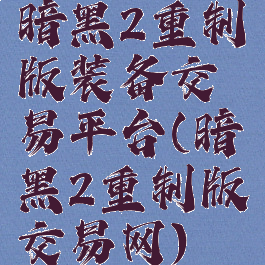 暗黑2重制
版装备交
易平台(暗
黑2重制版
交易网)